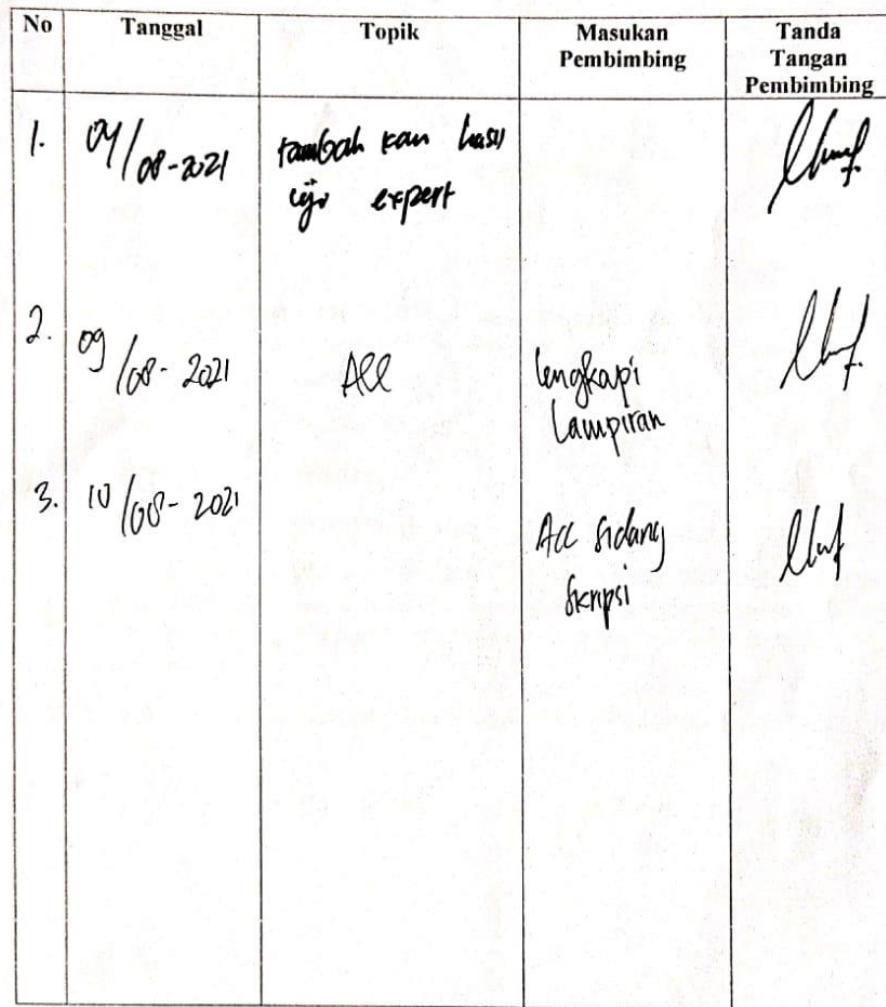 No Tanggal Topik Masukan Pembimbing Tanda Tangan Pembimbing
1. 04/08-2021 tambah kan hasil uji expert
2. 09/08-2021 All lengkapi Lampiran
3. 10/08-2021 Acc Sidang Skripsi